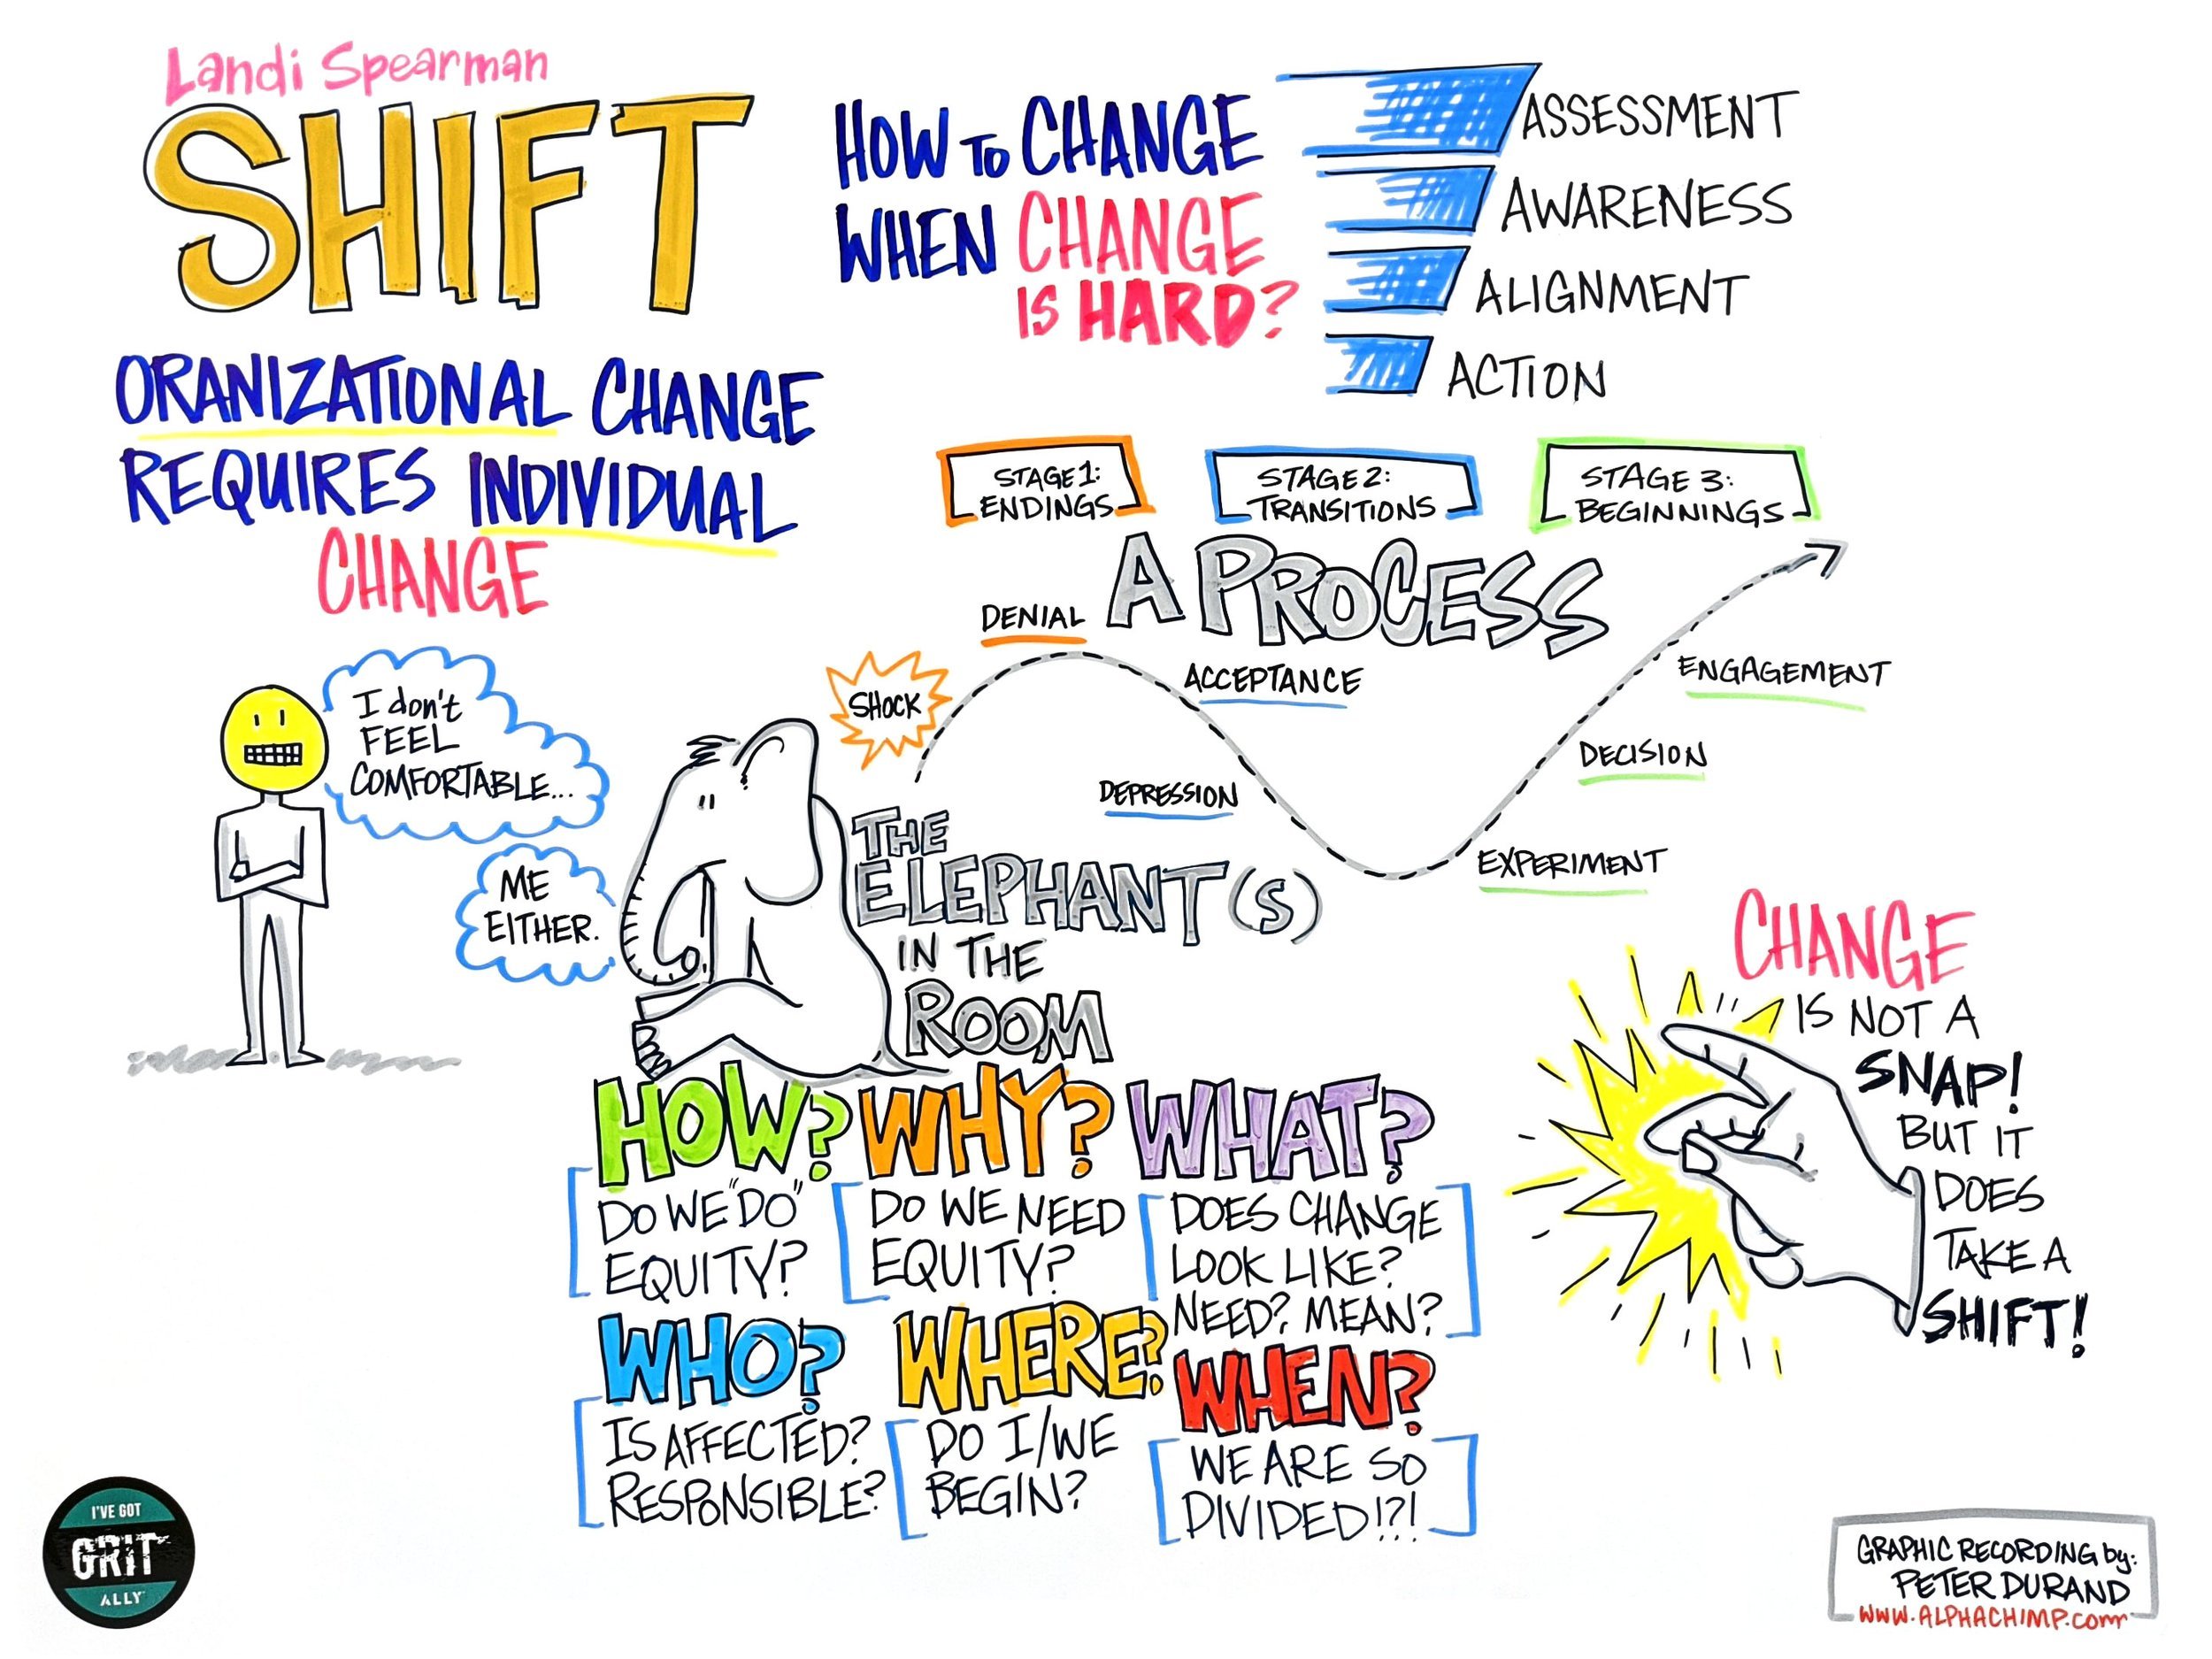 Landi Spearman
SHIFT
ORANIZATIONAL CHANGE
REQUIRES INDIVIDUAL
CHANGE
HOW TO CHANGE
WHEN CHANGE
IS HARD?
ASSESSMENT
AWARENESS
ALIGNMENT
ACTION
STAGE 1:
ENDINGS
STAGE 2:
TRANSITIONS
STAGE 3:
BEGINNINGS
A PROCESS
SHOCK
DENIAL
ACCEPTANCE
DEPRESSION
EXPERIMENT
DECISION
ENGAGEMENT
I don't
FEEL
COMFORTABLE...
ME
EITHER.
THE
ELEPHANT(S)
IN THE
ROOM
HOW?
DO WE "DO"
EQUITY?
WHY?
DO WE NEED
EQUITY?
WHAT?
DOES CHANGE
LOOK LIKE?
NEED? MEAN?
WHO?
IS AFFECTED?
RESPONSIBLE?
WHERE?
DO I/WE
BEGIN?
WHEN?
WE ARE SO
DIVIDED!?!
CHANGE
IS NOT A
SNAP!
BUT IT
DOES
TAKE A
SHIFT!
I'VE GOT
GRIT
ALLY
GRAPHIC RECORDING by:
PETER DURAND
www.ALPHACHIMP.com